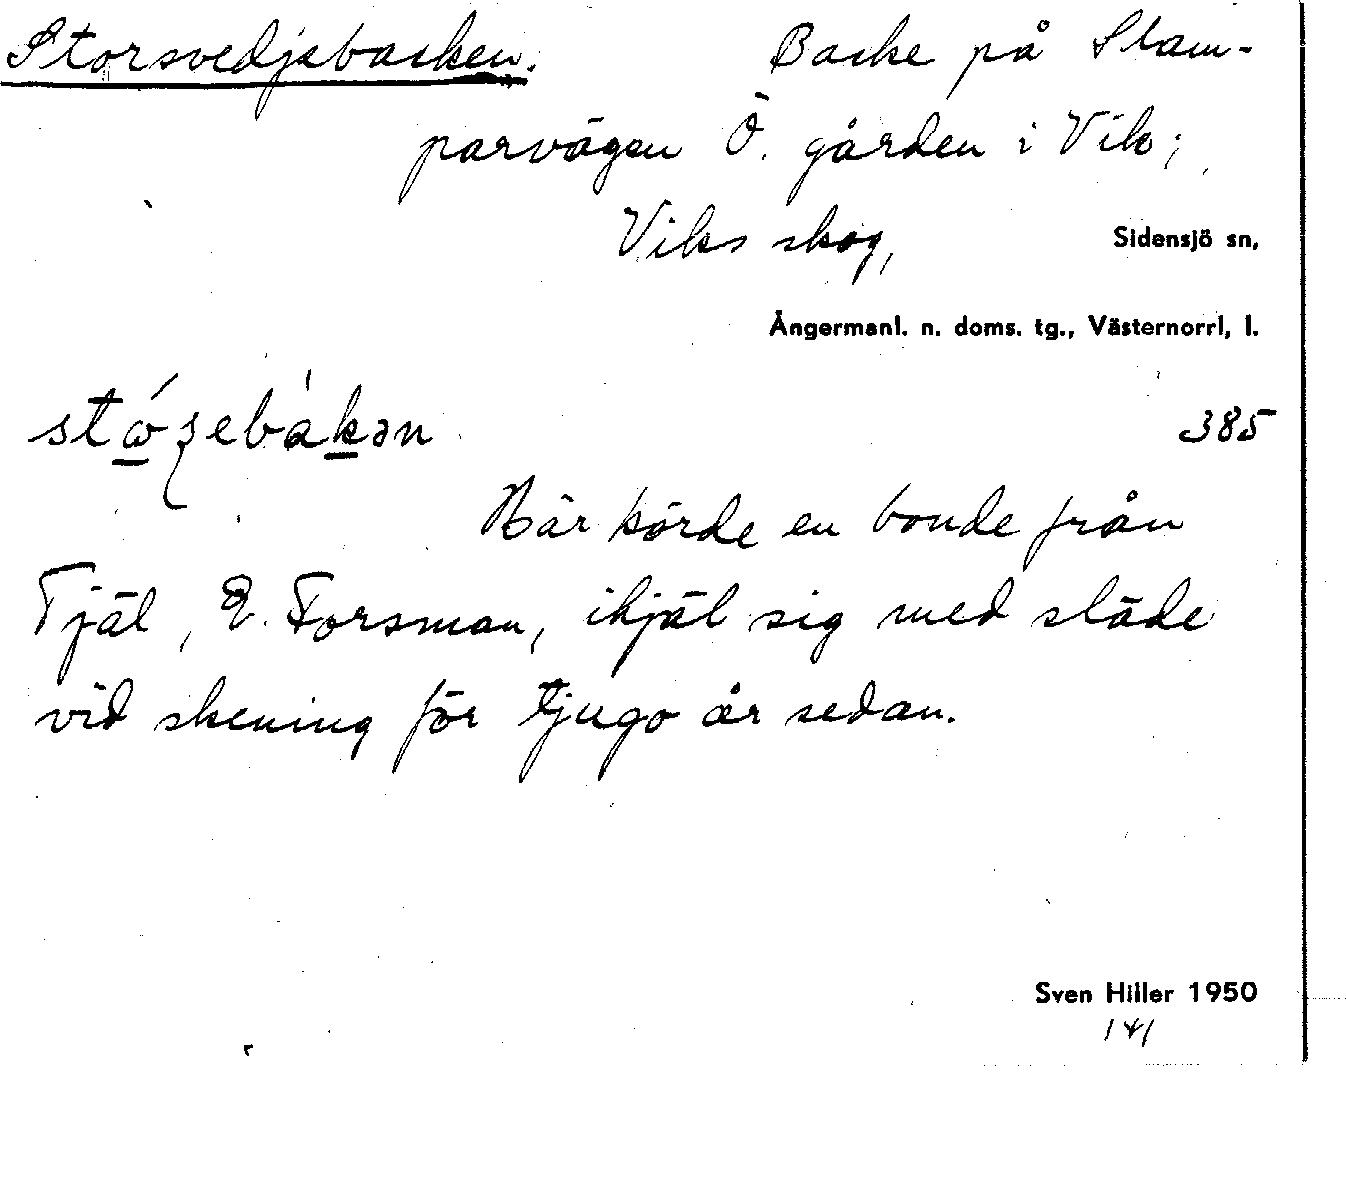 Storsvedjebacken. Backe på Stam-
parvägen Ö. gården i Vik;
Viks skog,
Sidensjö sn,
Ångermanl. n. doms. tg., Västernorrl, l.
385
Här körde en bonde från
Tjäl, E. Forsman, ihjäl sig med släde
vid skening för tjugo år sedan.
Sven Hiller 1950
141